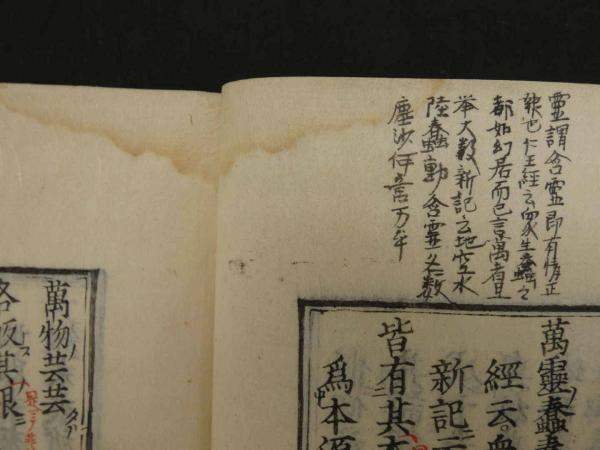 靈謂含靈即有情正
報也仁王經云衆生蠢々
都如幻居而已言萬者且
举大数新記云地空水
陸蠢動含靈名数
塵沙何啻万乎
萬靈蠢
經云衆
新記云
皆有其本
爲本源
萬物芸芸
各皈其根